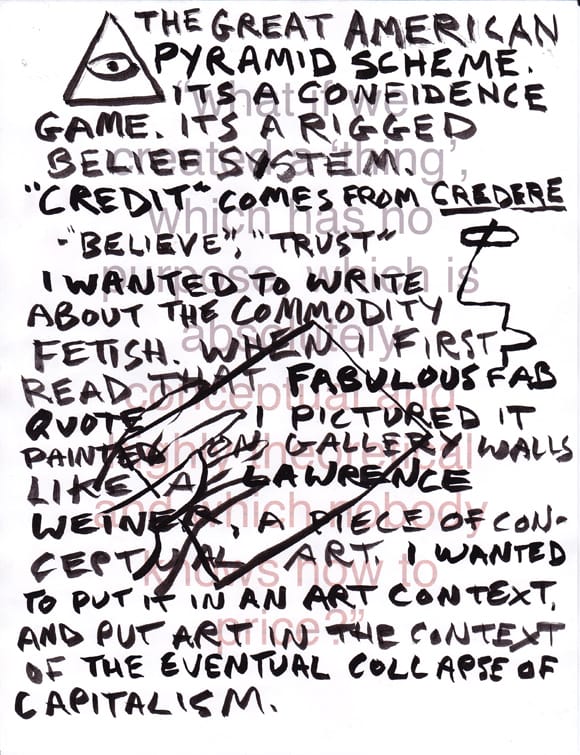 THE GREAT AMERICAN
PYRAMID SCHEME.
ITS A CONFIDENCE
GAME. ITS A RIGGED
BELIEF SYSTEM.
"CREDIT" COMES FROM CREDERE
-"BELIEVE", "TRUST"
I WANTED TO WRITE
ABOUT THE COMMODITY
FETISH. WHEN I FIRST
READ THAT FABULOUS FAB
QUOTE I PICTURED IT
PAINTED ON GALLERY WALLS
LIKE A LAWRENCE
WEINER, A PIECE OF CON-
CEPTUAL ART. I WANTED
TO PUT IT IN AN ART CONTEXT,
AND PUT ART IN THE CONTEXT
OF THE EVENTUAL COLLAPSE OF
CAPITALISM.
"what if we
created a 'thing',
which has no
purpose, which is
absolutely
conceptual and
highly theoretical
and which nobody
knows how to
price?"